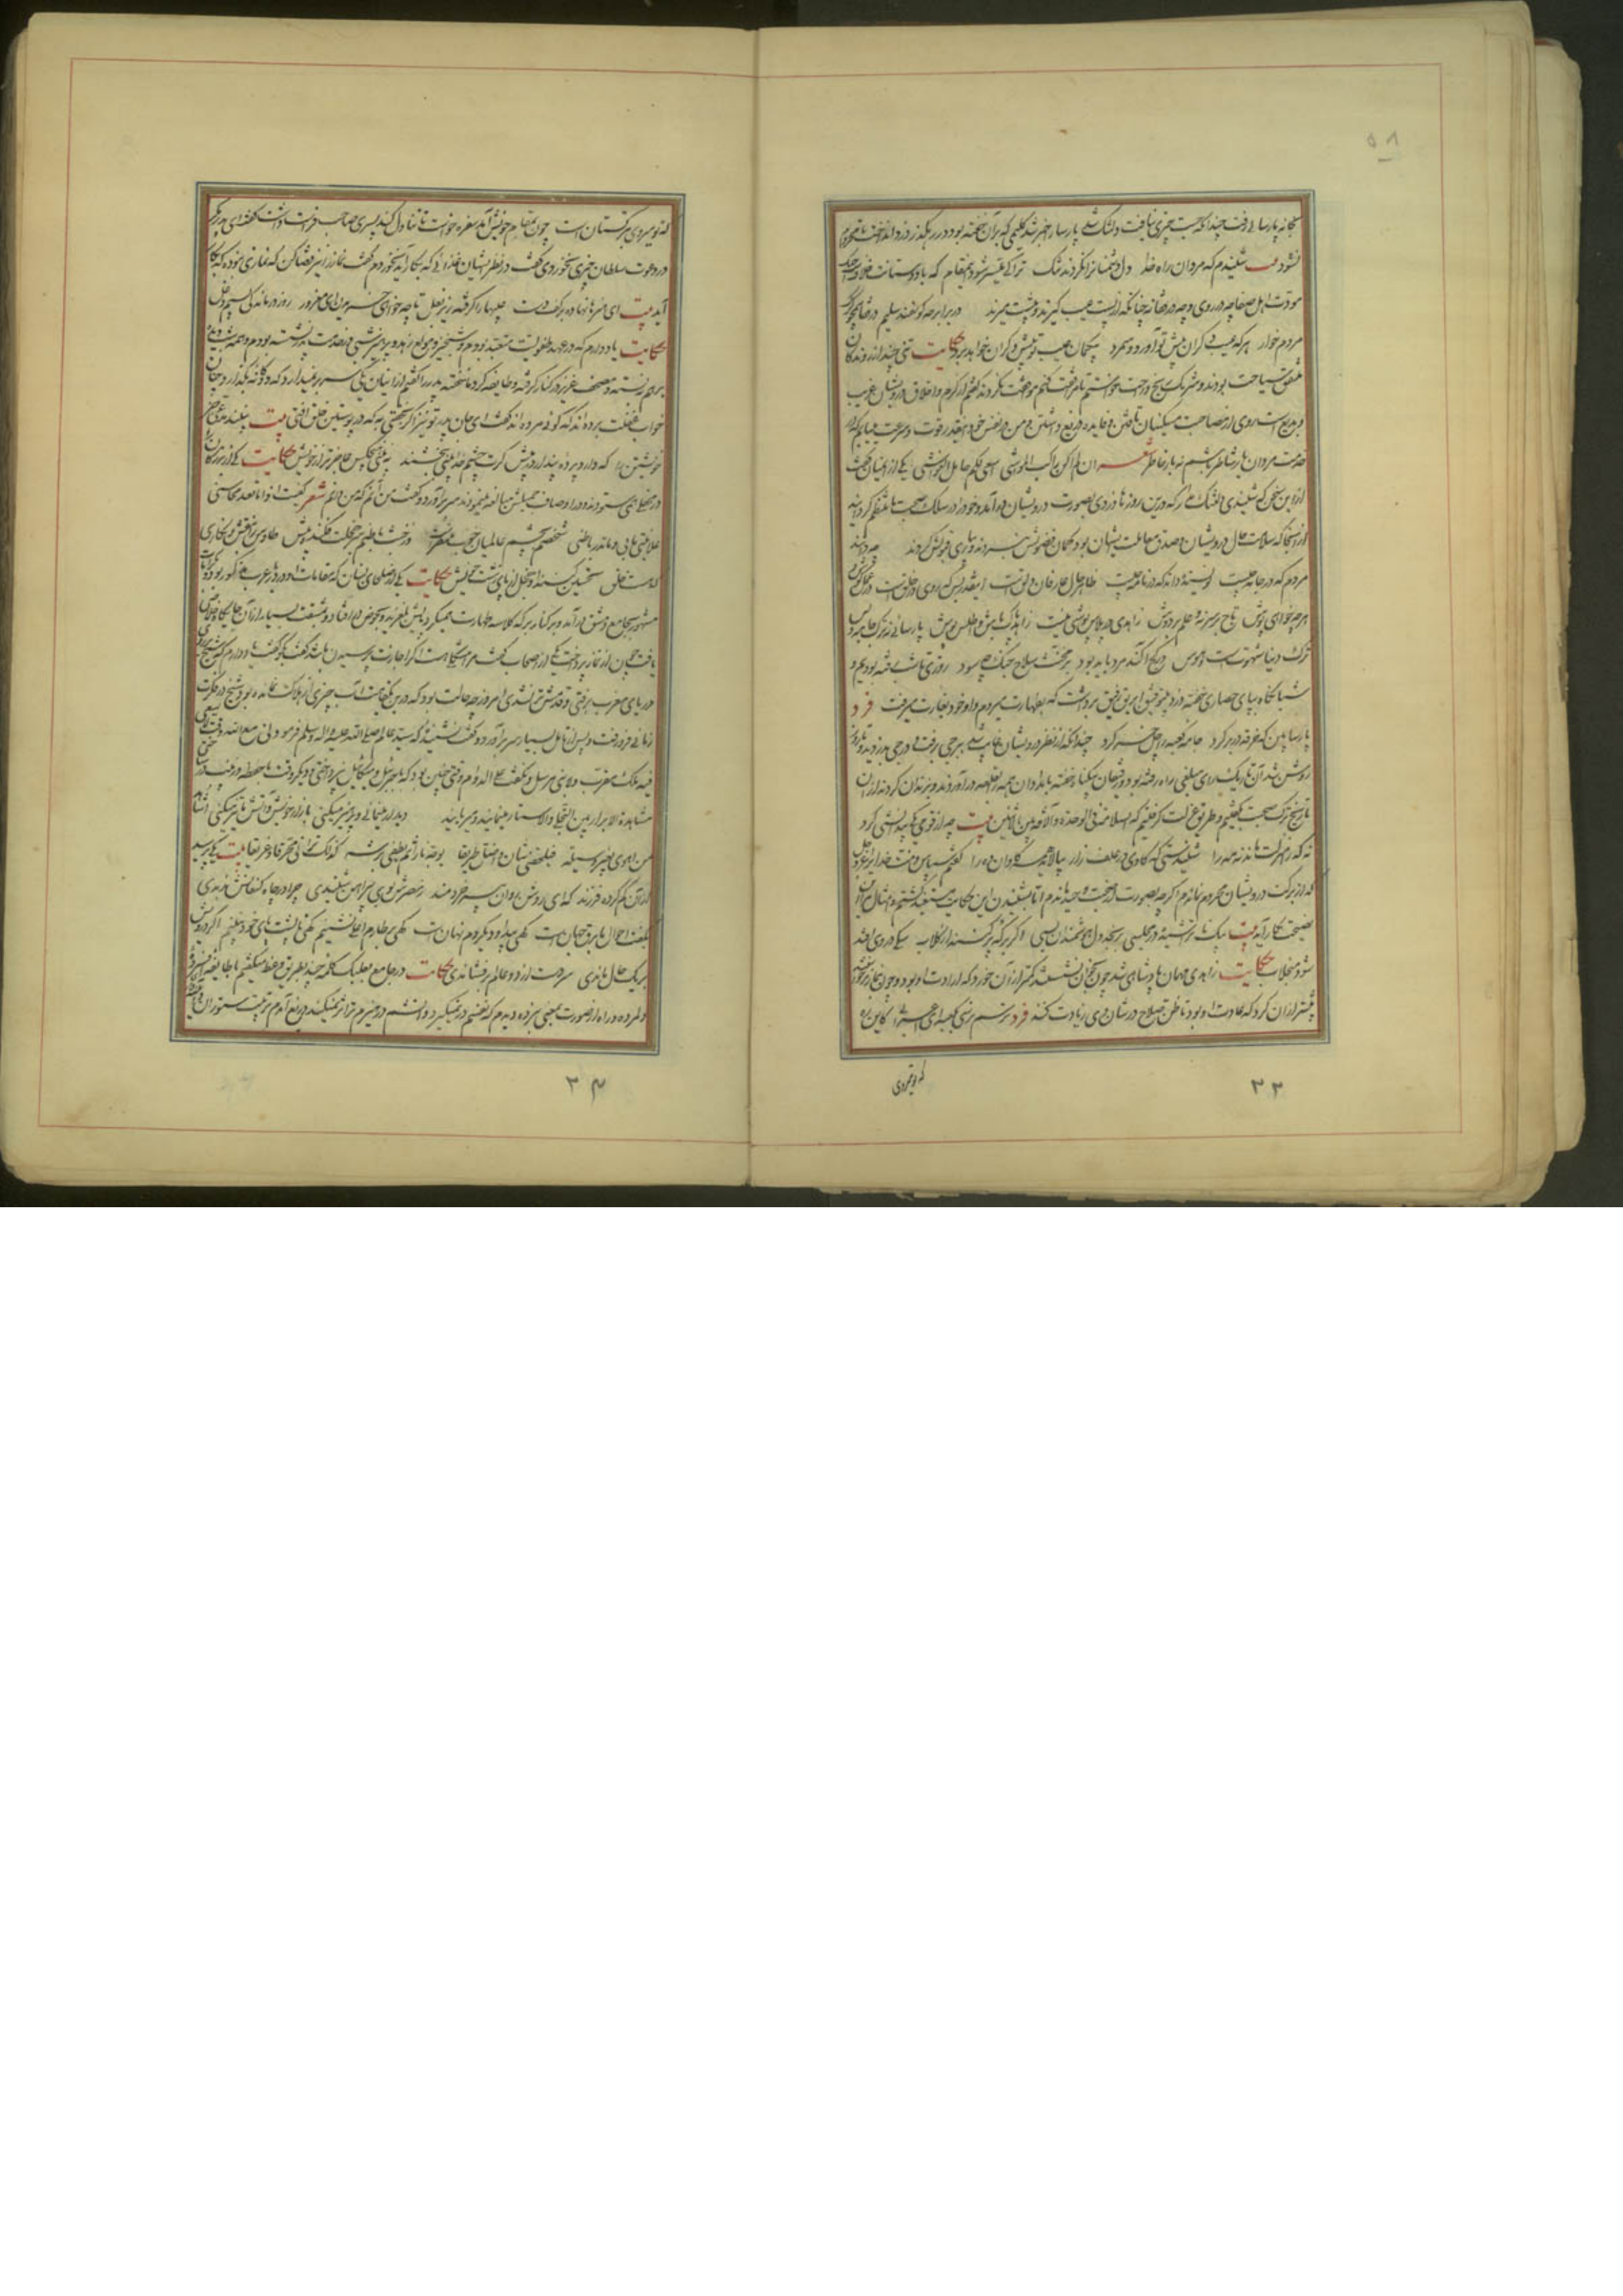 ۵۸
بخانه پارسایی رفت چندانکه جست چیزی نیافت دلتنگ شد پارسا را خبر شد گلیمی که بر آن خفته بود در رهگذر دزد انداخت تا محروم
نشود بیت شنیدم که مردان راه خدا دل دشمنان را نکردند تنگ ترا کی میسر شود این مقام که با دوستانت خلافست و جنگ
مودت اهل صفا چه در روی و چه در قفا نه چنانکه از پست عیب گیرند و پیشت میرند در برابر چو گوسفند سلیم در قفا همچو گرگ
مردم خوار هر که عیب دگران پیش تو آورد و شمرد بیگمان عیب تو پیش دگران خواهد برد حکایت تنی چند از روندگان
متفق سیاحت بودند و شریک رنج و راحت خواستم تا مرافقت کنم موافقت نکردند گفتم از کرم و اخلاق درویشان غریب
و بدیع است روی از مصاحبت مسکینان تافتن و فایده دریغ داشتن و من در نفس خود اینقدر قوت و سرعت میبایم که در
خدمت مردان یار شاطر باشم نه بار خاطر شعر ان لم اکن راکب المواشی اسعی لکم حامل الغواشی یکی از ایشان گفت
ازین سخن که شنیدی دلتنگ مدار که درین روزها دزدی بصورت درویشان در آمد و خود را در سلک صحبت ما منتظم گردانید
از آنجا که سلامت حال درویشان و صدق معاملت ایشان بود گمان فضولش نبردند و بیاری قبولش کردند چه دانند
مردم که در جامه کیست نویسنده داند که در نامه چیست ظاهر حال عارفان دلق است اینقدر بس که روی در خلق است در عمل کوش و
هر چه خواهی پوش تاج بر سر نه و علم بر دوش زاهدی در پلاس پوشی نیست زاهد پاک باش و اطلس پوش پارسایی نه ترک جامه و بس
ترک دنیا و شهوت است و هوس در کژاکند مرد باید بود بر مخنث سلاح جنگ چه سود روزی تا شب رفته بودیم و
شبانگاه بپای حصاری خفته دزد بیتوفیق ابریق رفیق برداشت که بطهارت میروم و او خود بغارت میرفت فرد
پارسا بین که خرقه در بر کرد جامه کعبه را جل خر کرد چندانکه از نظر درویشان غایب شد ببرجی برفت و درجی بدزدید تا روز
روشن شد آن تاریک رای مبلغی راه رفته بود و رفیقان بیگناه خفته بامدادان همه را بقلعه در آوردند و بزندان کردند از آن
تاریخ ترک صحبت گفتیم و طریق عزلت گرفتیم که السلامة فی الوحدة و الآفة بین الاثنین بیت چو از قومی یکی بیدانشی کرد
نه که را منزلت ماند نه مه را شنیدستی که گاوی در علف زار بیالاید همه گاوان ده را گفتم سپاس و منت خدایرا عز و جل
که از برکت درویشان محروم نماندم اگر چه بصورت از صحبت وحید ماندم اما بشنیدن این حکایت مستفید گشتم و امثال مرا این
نصیحت بکار آید بیت بیک ناتراشیده در مجلسی برنجد دل هوشمندان بسی اگر برکه پر کنند از گلاب سگی در وی افتد
شود منجلاب حکایت زاهدی مهمان پادشاهی شد چون بخوان نشستند کمتر از آن خورد که ارادت او بود و چون بنماز برخواستند
بیشتر از آن کرد که عادت او بود تا ظن صلاح در شان وی زیادت کنند فرد ترسم نرسی بکعبه ای اعرابی کاین ره
که تو میروی
۳۳
که تو میروی بترکستان است چون بمقام خویش آمد سفره خواست تا تناول کند پسری صاحب فراست داشت گفت ای پدر مگر
در دعوت سلطان چیزی نخوردی گفت در نظر ایشان غذایی که بکار آید نخوردم گفت نماز را نیز قضا کن که نمازی نبوده که بکار
آید بیت ای هنرها نهاده بر کف دست عیبها را گرفته زیر بغل تا چه خواهی خریدن ای مغرور روز درماندگی بسیم دغل
حکایت یاد دارم که در عهد طفولیت متعبد بودم و شبخیز و مولع زهد و پرهیز شبی در خدمت پدر نشسته بودم و همه شب دیده
برهم نبسته و مصحف عزیز در کنار گرفته و طایفه گرد ما خفته پدر را گفتم از اینان یکی سر بر نمیدارد که دوگانه بگذارد چنان
خواب غفلت برده اند که گویی مرده اند گفت ای جان پدر تو نیز اگر بخفتی به که در پوستین خلق افتی بیت نبیند مدعی جز
خویشتن را که دارد پرده پندار در پیش گرت چشم خدا بینی ببخشند نه بینی هیچکس عاجزتر از خویش حکایت یکی از بزرگان را
در محفلی همی ستودند و در اوصاف جمیلش مبالغه مینمودند سر بر آورد و گفت من آنم که من دانم شعر کفیت اذی یا من تعد محاسنی
علانیتی هذا و لم تدر باطنی شخصم بچشم عالمیان خوب منظر است وز خبث باطنم سر خجلت فکنده پیش طاوس را بنقش و نگاری
که هست خلق تحسین کنند او خجل از پای زشت خویش حکایت یکی از صلحای لبنان که مقامات او در دیار عرب مذکور بود و کرامات
مشهور بجامع دمشق در آمد و بر کنار برکه کلاسه طهارت میکرد پایش بلغزید و بحوض در افتاد و بمشقت بسیار از آن جایگاه خلاص
یافت چون از نماز پرداختند یکی از اصحاب گفت مرا مشکلی است اگر اجازت پرسیدن باشد گفت بگو گفت یاد دارم که شیخ بروی
دریای مغرب برفتی و قدمش تر نشدی امروز چه حالت بود که درین یکقامت آب چیزی از هلاکت نمانده بود شیخ در فکرت
زمانی فرو رفت و پس از تامل بسیار سر بر آورد و گفت نشنیدۀ که سید عالم صلی الله علیه و آله و سلم فرمود لی مع الله وقت لا یسعنی
فیه ملک مقرب و لا نبی مرسل و نگفت علی الدوام وقتی چنین بود که بجبرئیل و میکائیل نپرداختی و دیگر وقت با حفصه و زینب در ساختی
مشاهدة الابرار بین التجلی و الاستتار مینمایند و میربایند دیدار مینمایی و پرهیز میکنی بازار خویش و آتش ما تیز میکنی اشاهد
من اهوی بغیر وسیلة فیلحقنی شان و اضل طریقا یوجج نارا ثم یطفی برشة کذاک ترانی محرقا و غریقا بیت یکی پرسید
از آن گم کرده فرزند که ای روشن روان پیر خردمند ز مصرش بوی پیراهن شنیدی چرا در چاه کنعانش ندیدی
بگفت احوال ما برق جهان است گهی پیدا و دیگر دم نهان است گهی بر طارم اعلی نشینم گهی تا پشت پای خود نبینم اگر درویش
بریک حال ماندی سر و دست از دو عالم برفشاندی حکایت در جامع بعلبک کلمه چند بطریق وعظ میگفتم با طایفه افسرده
دلمرده و راه از صورت بمعنی نبرده دیدم که نفسم در نمیگیرد و آتشم در هیزم تر اثر نمیکند دریغ آمدم تربیت ستوران
۳۴